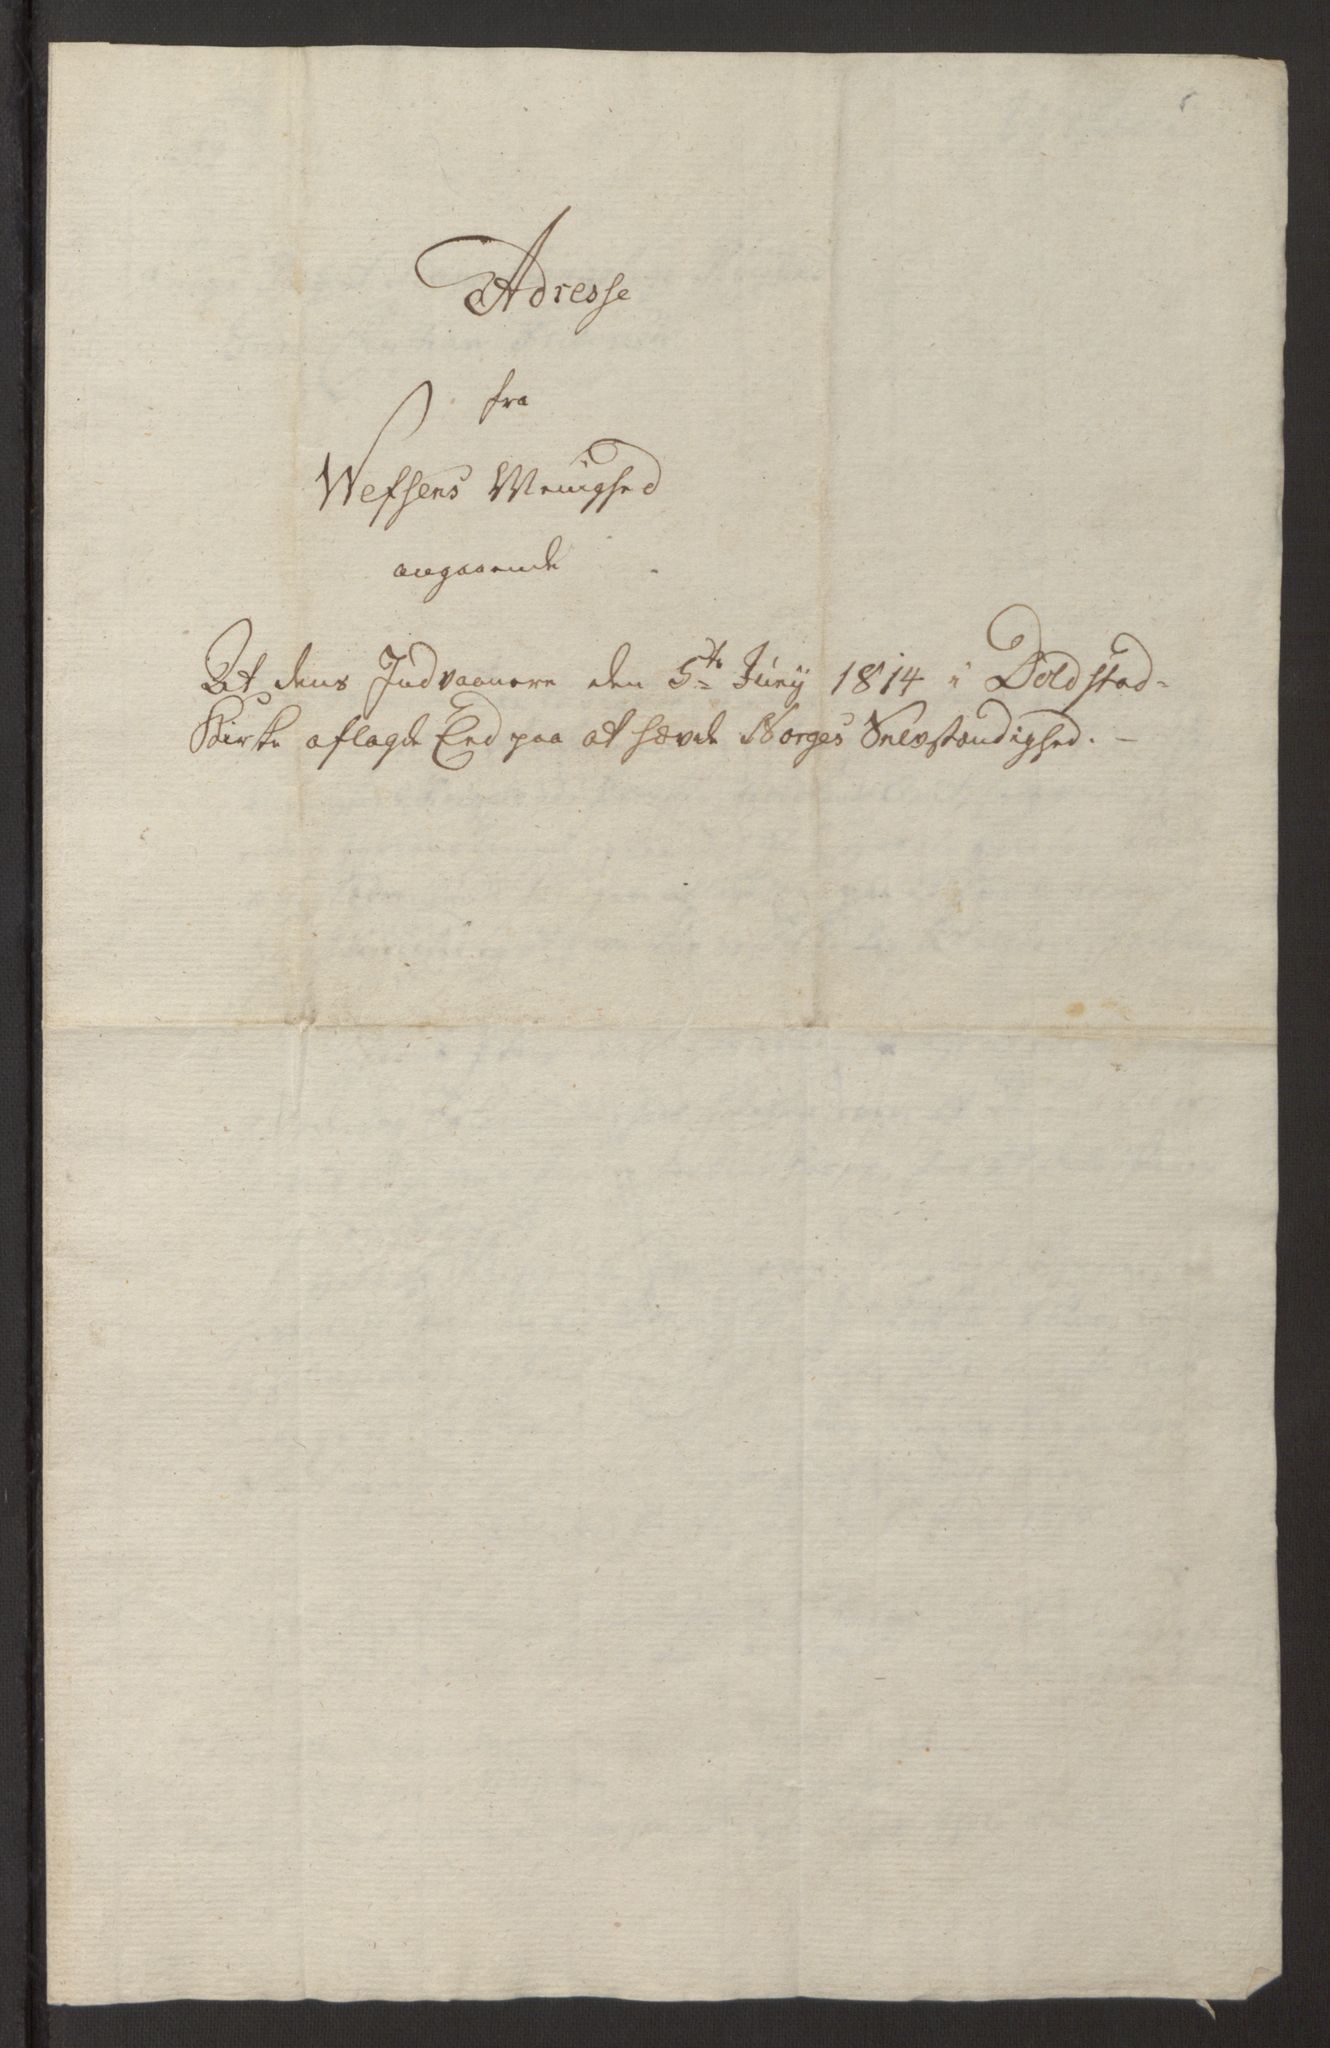 Adresse
fra
Wefsens Menighed
angaaende
At dens Indvaanere den 5te Junÿ 1814 i Dolstad-
Kirke aflagde Eed paa at hævde Norges Selvstændighed. –